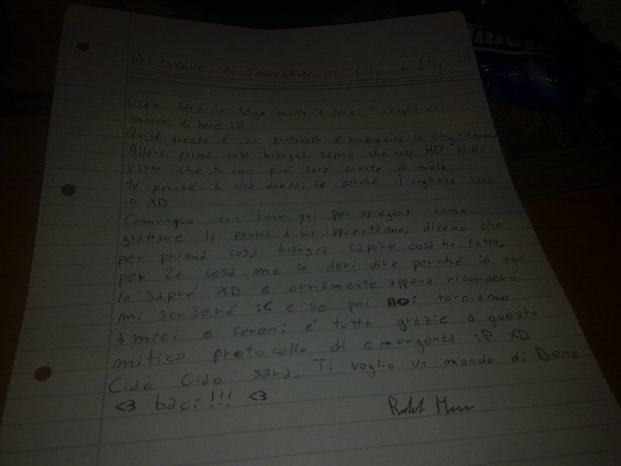 Protocollo di emergenza in caso di litigio :D
Ciao sara io tengo molto a te e ti voglio un
mondo di bene :D
Quindi questo é un protocollo di emergenza se litighiamo
Allora prima cosa bisogna sapire che cosa HO Fatto
visto che tu non puoi fare niente di male,
1º perché 6 una donna, 2º perché il coglione sono
io XD
Comunque non sono qui per spiegarti come
grattare la pancia a un ippopotamo, dicevo che
per prima cosa bisogna capire cosa ho fatto,
per 2a cosa me lo devi dire perché io non
lo sapró XD e ovviamente appena ricorderó
mi scuseró :C e se poi noi torniamo
amici e sereni é tutto grazie a questo
mitico protocollo di emergenza :P XD
Ciao Ciao sara, Ti voglio un mondo di Bene
<3 baci!!! <3